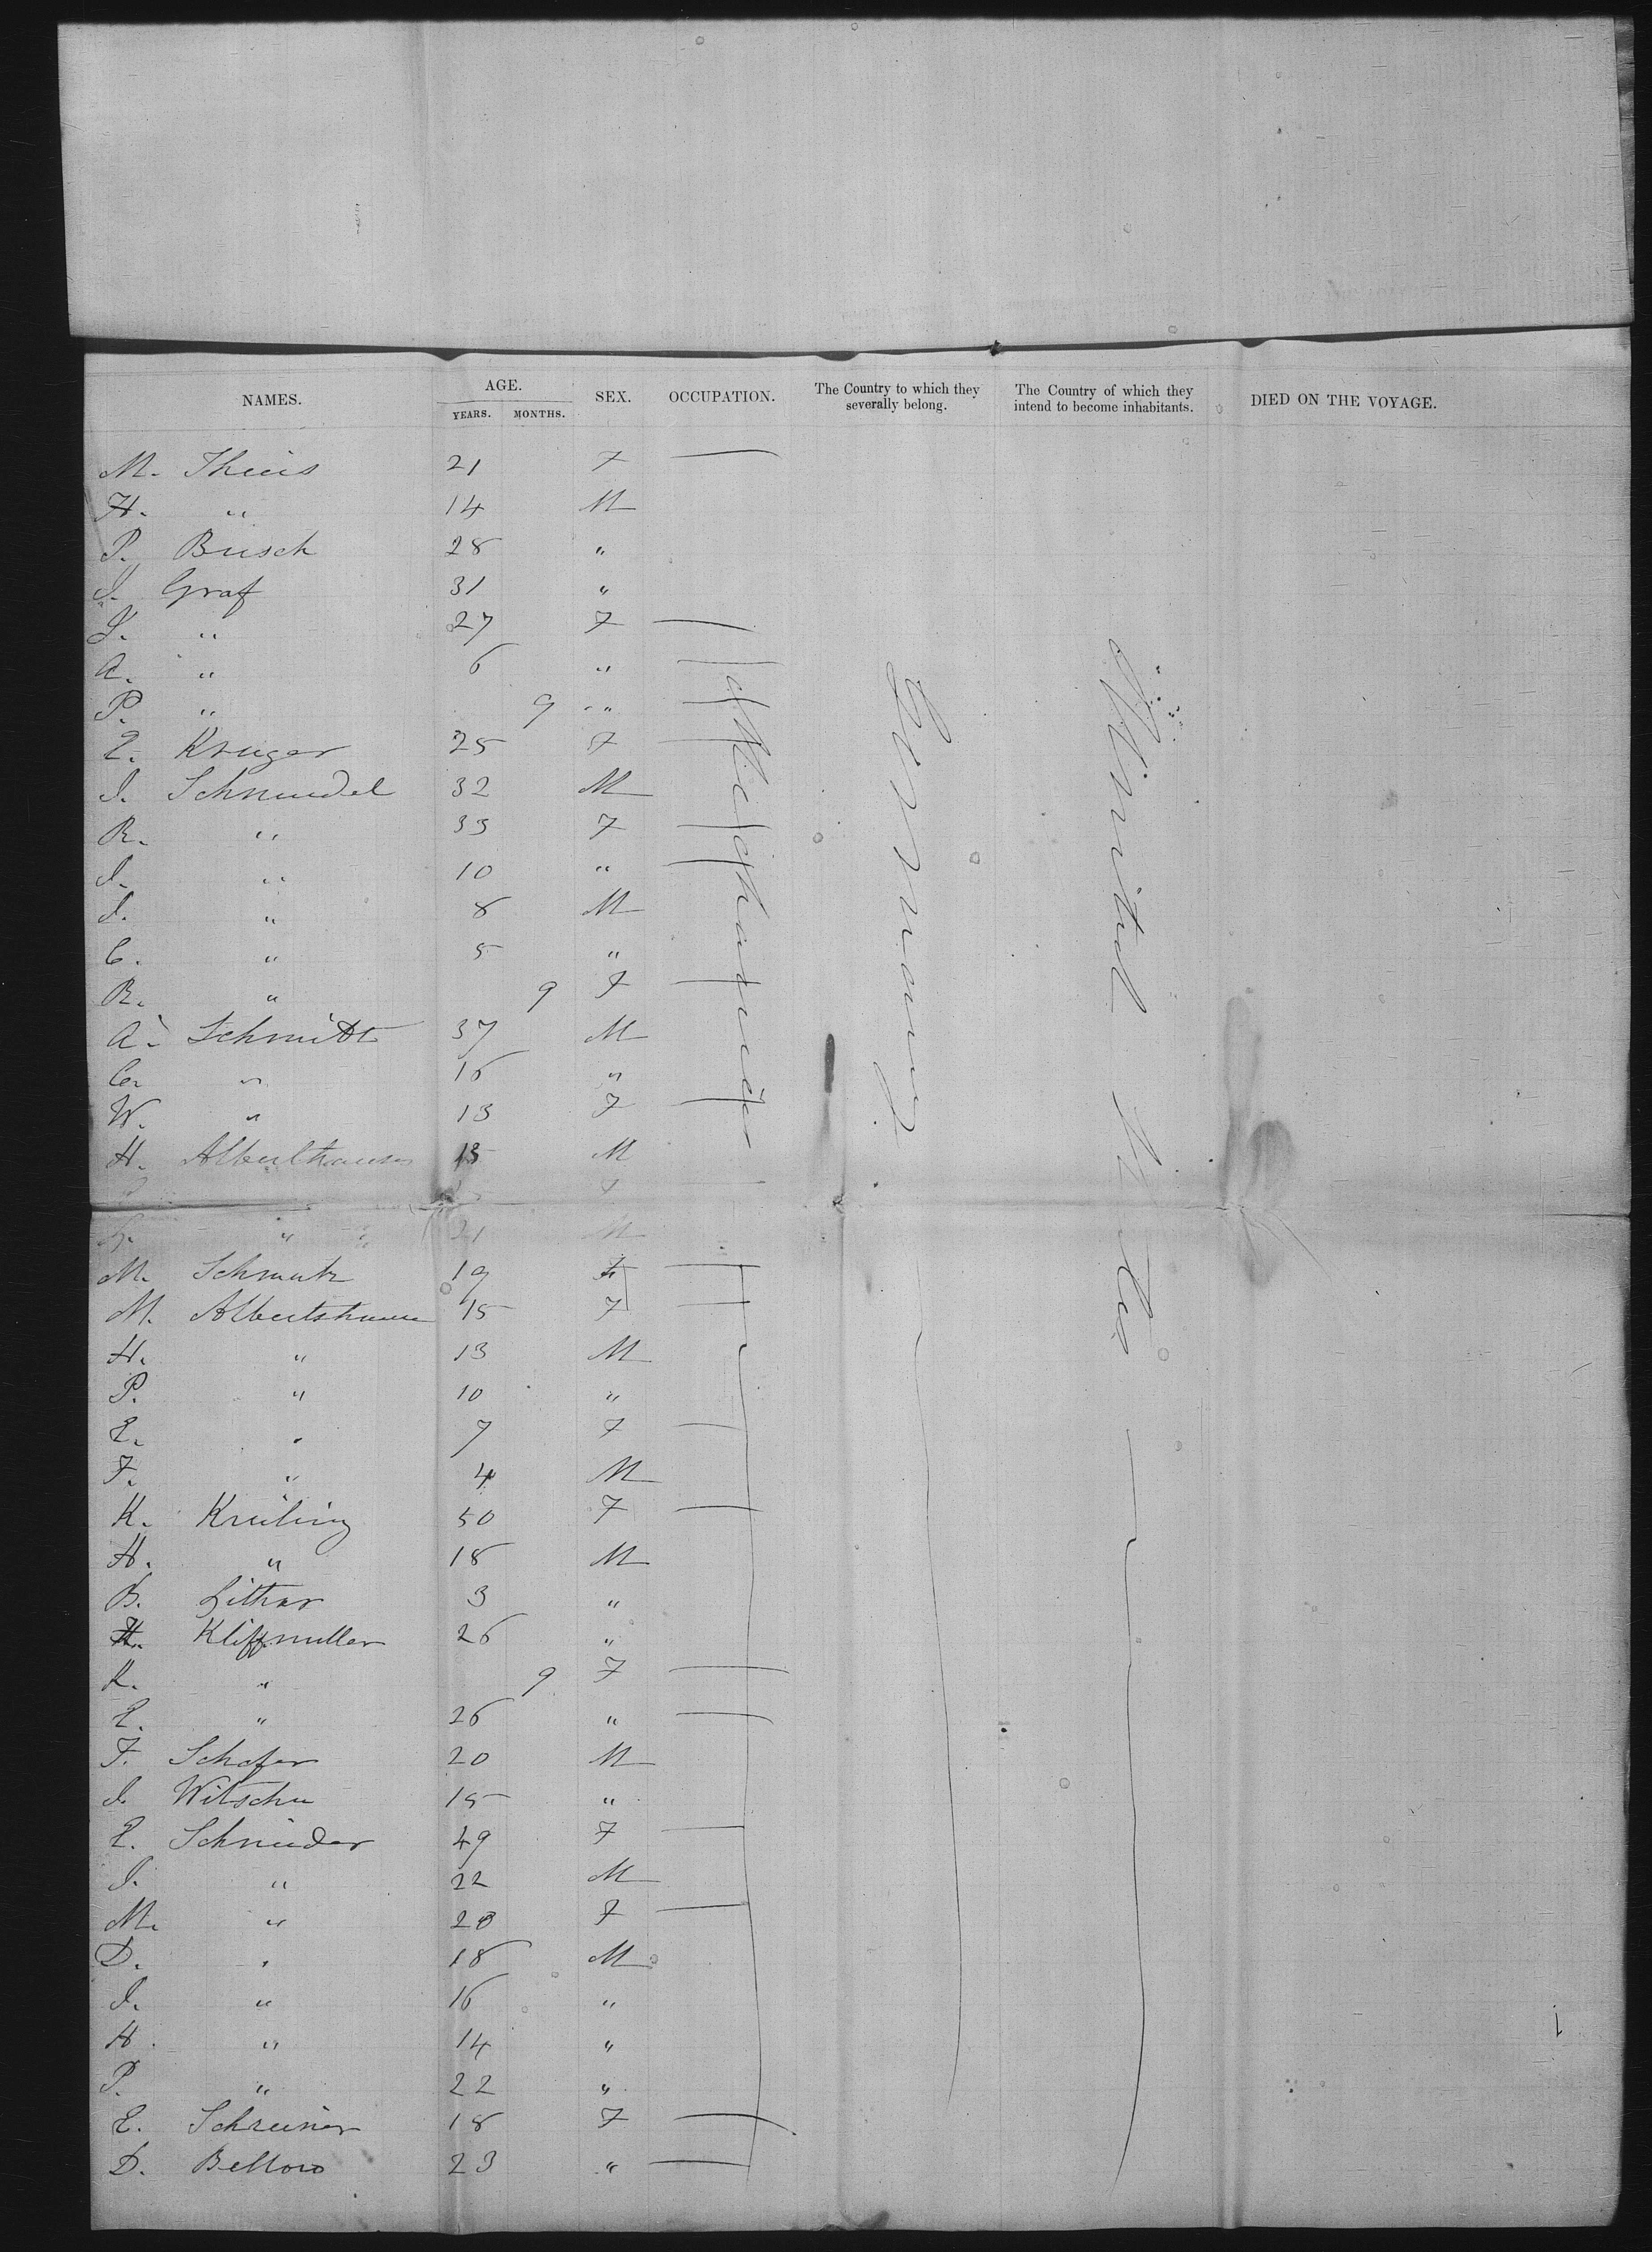 NAMES. AGE. SEX. OCCUPATION. The Country to which they severally belong. The Country of which they intend to become inhabitants. DIED ON THE VOYAGE.
YEARS. MONTHS.
M. Theis 21 F —
H. " 14 M
P. Busch 28 "
J. Graf 31 "
J. " 27 F —
A. " 6 " —
P. " 9 " —
E. Kruger 25 F —
J. Schneudel 32 M
R. " 33 F —
J. " 10 " —
J. " 8 M
C. " 5 "
R. " 9 F —
A. Schmitt 37 M
C. " 16 "
W. " 13 F —
H. 15 M
" 21 M
M. Schmutz 19 F —
M. 15 F —
H. " 13 M
P. " 10 "
E. " 7 F —
F. " 4 M
K. Kruling 50 F —
H. " 18 M
B. Lithar 3 "
H. Kliffmuller 26 "
K. " 9 F —
E. " 26 " —
F. Schafer 20 M
J. Witschu 15 "
E. Schnieder 49 F —
J. " 22 M
M. " 20 F —
D. " 18 M
J. " 16 "
H. " 14 "
P. " 22 "
E. Schreiner 18 F —
D. Bellow 23 " —
Mechanics
Germany
United States
1